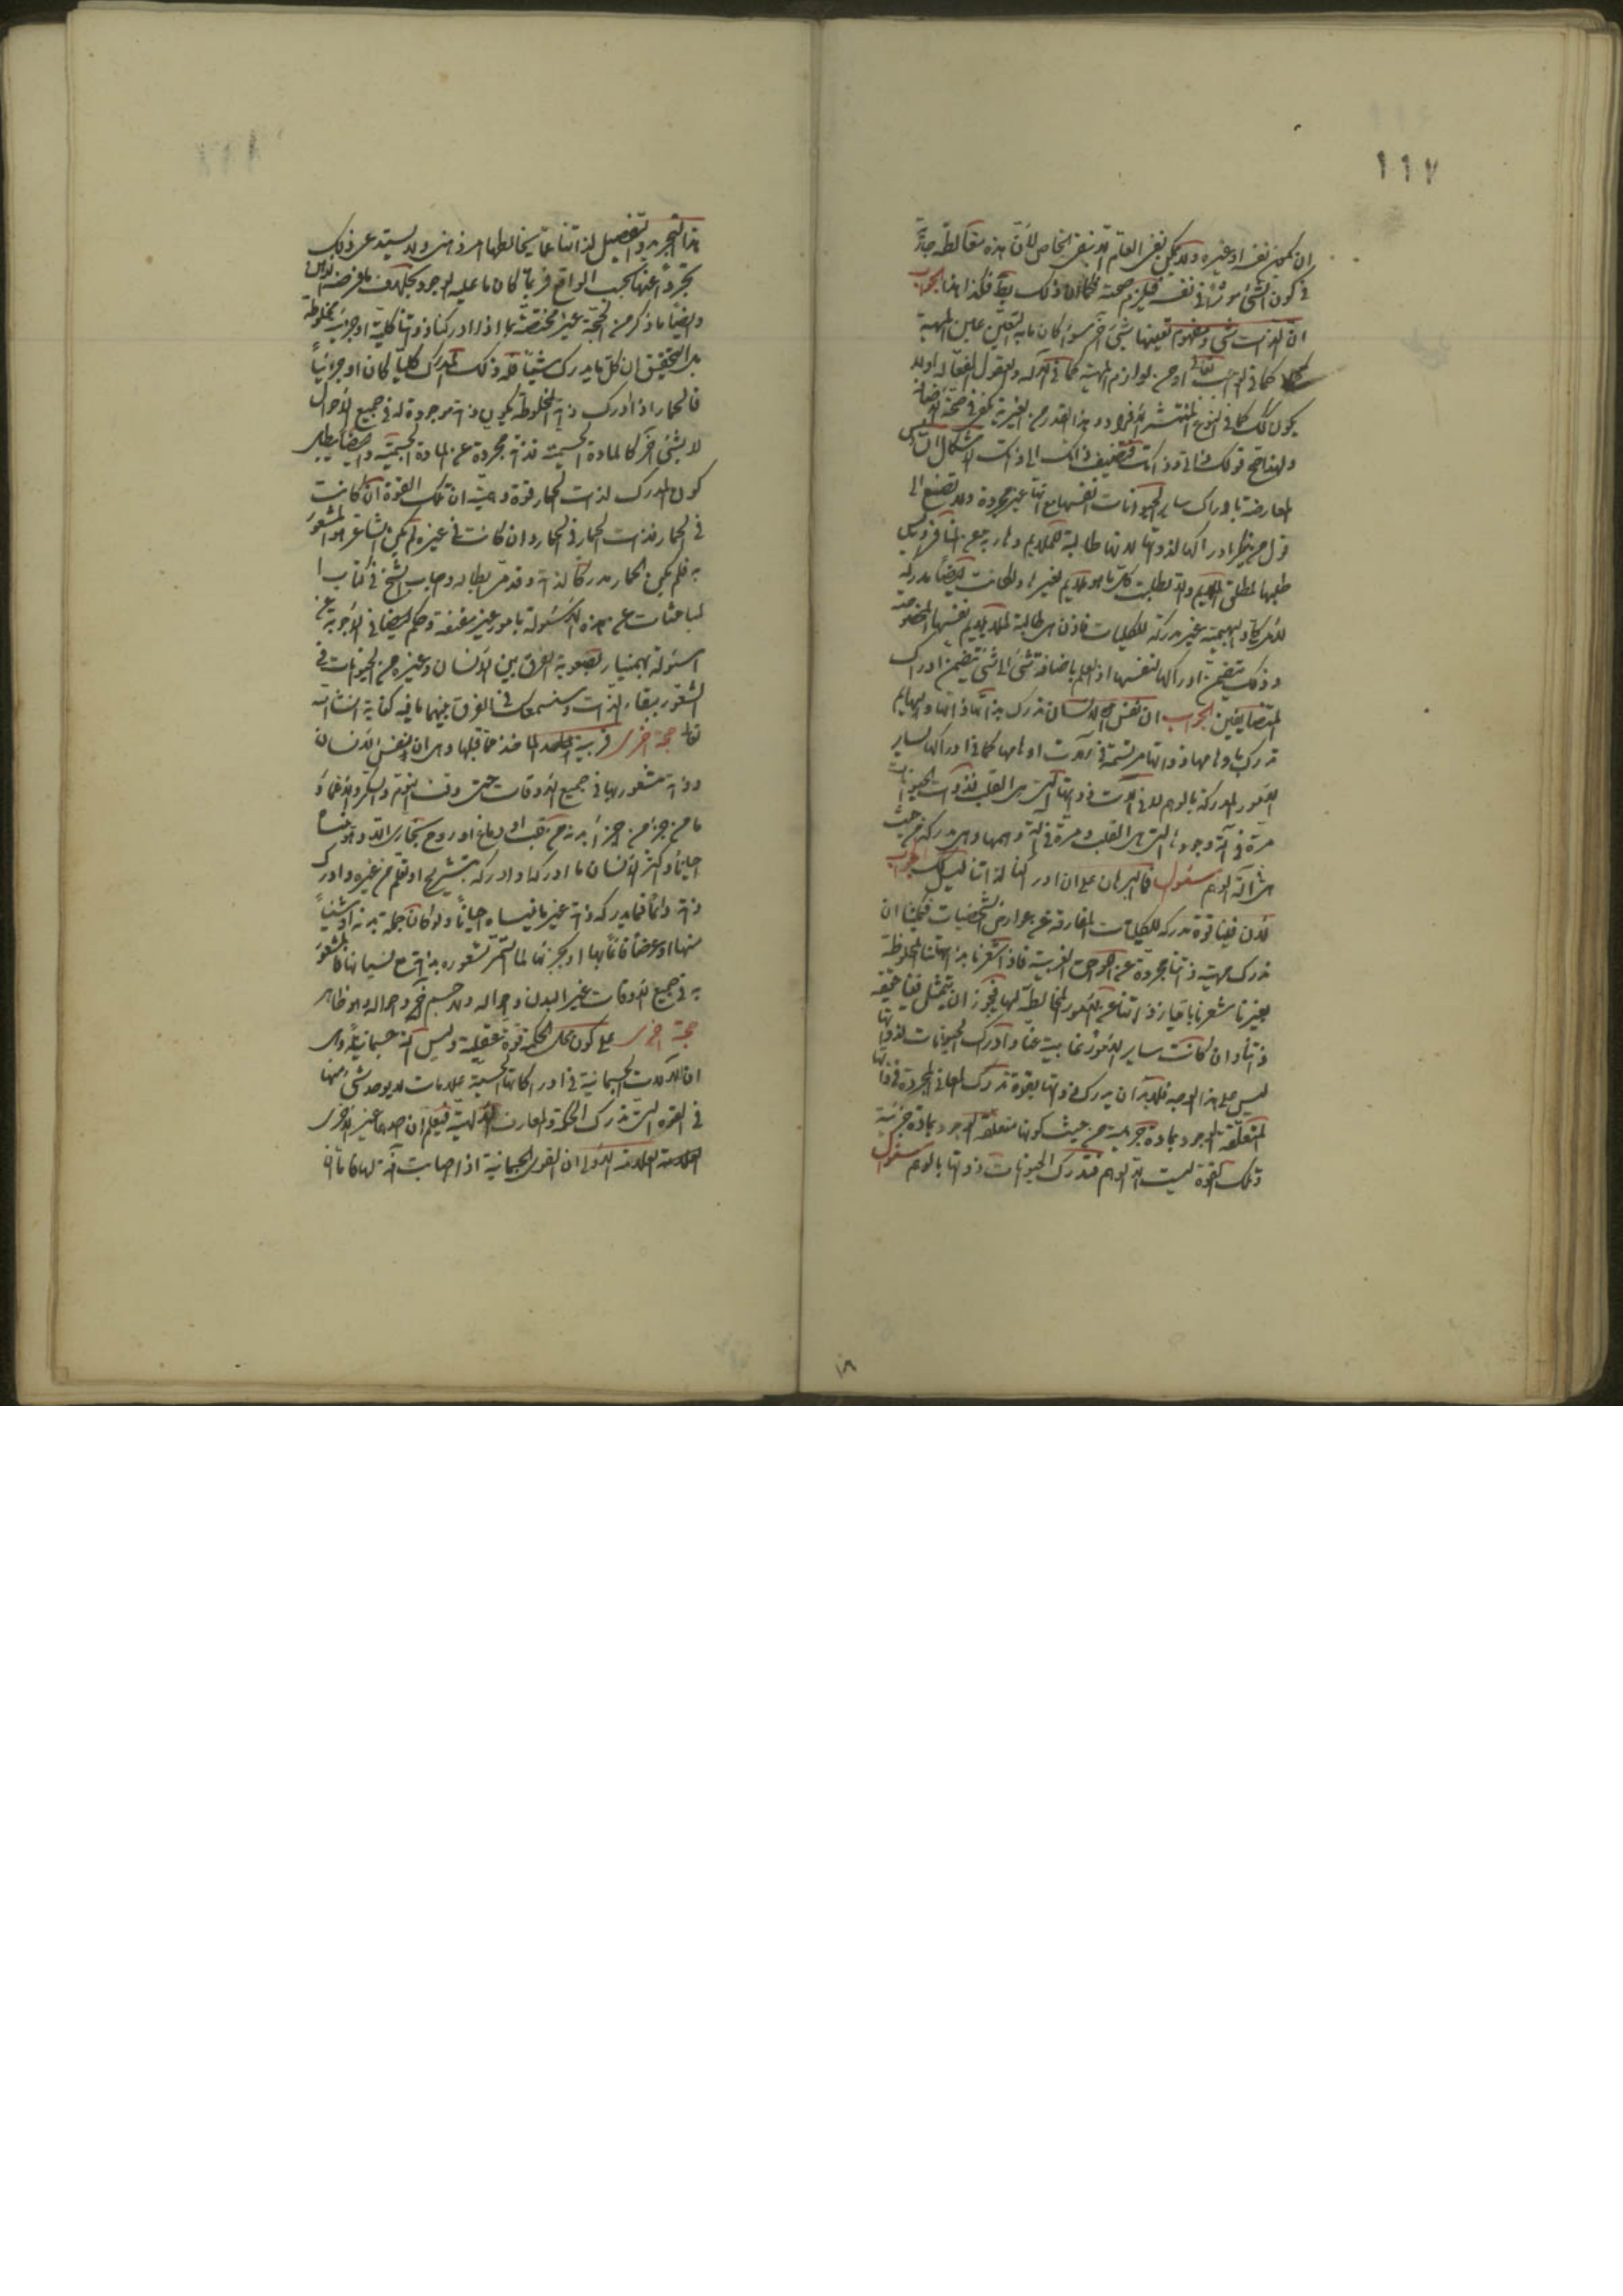 ١١٧
ان يكون نفسه او غيره ولا يمكن نفى العام الا بنفى الخاص لأن هذه مغالطة جارية
في كون الشئ مؤثرا في نفسه فيلزم صحته ذلك فكذا هذا الجواب
ان الذات شئ ومفهوم تعينها شئ آخر سواء كان ما به التعين عين المهية
كما في الواجب تعالى او من لوازم المهية كما في الآلة والعقول الفعالة او لا
يكون كذلك كما في النوع المنتشر الافراد وهذا القدر من الغيرية يكفي في صحة الاضافة
ولهذا صح قولك ذاتي وذاتك فتضيف ذاتك الى ذاتك الاشكال الثاني
المعارضة بادراك ساير الحيوانات انفسها مع انها غير مجردة ولا تصغ الى
قول من ينكر ادراكها لذواتها لانها طالبة للملايم وهاربة عن المنافر وليس
طلبها لمطلق الملايم والا لطلبت كل ما هو ملايم لغيرها ولكانت ايضا مدركة
للامر الكلي والبهيمية غير مدركة للكليات فاذن هي طالبة لما يلايم نفسها المخصوصة
وذلك يتضمن ادراكها لنفسها اذ العلم باضافة شئ الى شئ يتضمن ادراك
المتضايفين الجواب ان نفس الانسان تدرك بذاتها ذاتها والبهايم
تدرك باوهامها ذواتها مرتسمة في آلات اوهامها كما في ادراكها لساير
الامور المدركة بالوهم لا في آلات ذواتها التي هي القلب فذوات الحيوانات
مرة في آلة وجودها التي هي القلب ومرة في آلة وهمها وهي مدركة من حيث
هي في آلة الوهم سؤال فما البرهان على ان ادراكنا لذاتنا ليس كذلك جواب
لأن فينا قوة مدركة للكليات المفارقة عن عوارض الشخصيات فيمكننا ان
ندرك مهية ذاتها مجردة عن اللواحق الغريبة فاذا شعرنا بذاتنا المخلوطة
بغيرنا شعرنا بامتياز ذاتنا عن الامور المخالطة لها فيجوز ان يتمثل فينا حقيقة
ذاتنا وان كانت ساير الامور غايبة عنا وادراك الحيوانات لذواتها
ليس على هذا الوجه فلا بد ان يدرك ذواتها بقوة تدرك المعاني المجردة في ذاتها
المتعلقة الوجود بمادة جزئية من حيث كونها متعلقة الوجود بمادة جزئية
وتلك القوة ليست الا الوهم فتدرك الحيوانات ذواتها بالوهم سؤال
١٨
هذا التجريد والتفصيل لذاتنا عما يخالطها امر ذهني ولا يستدعي ذلك
تجردا عنها بحسب الواقع فربما كان ما عليه الوجود بخلاف ما فرضه الذهن
وايضا ما ذكر من الحجة غير مختصة بما اذا ادركنا ذواتنا كلية او جزئية مخلوطة
بل التحقيق ان كل ما يدرك شيئا فله ذلك المدرك كليا كان او جزئيا
فالحمار اذا ادرك ذاته المخلوطة يكون ذاته موجودة له في جميع الأحوال
لا لشئ آخر كالمادة الجسمية فذاته مجردة عن المادة الجسمية وايضا يبطل
كون المدرك لذات الحمار قوة وهمية ان تلك القوة ان كانت
في الحمار فذات الحمار في الحمار وان كانت في غيره لم يكن الشاعر هو المشعور
به فلم يكن الحمار مدركا لذاته وقد مر بطلانه واجاب الشيخ في كتاب ا
لمباحثات عن هذه الأسئولة بامور غير مقنعة وحكم ايضا في الأجوبة عن
اسئولة بهمنيار بصعوبة الفرق بين الأنسان وغيره من الحيوانات في
الشعور ببقاء الذات وسنسمعك في الفرق بينهما ما فيه كفاية انشاء الله
تعالى حجة اخرى قريبة المأخذ مما قبلها وهي ان النفس الانسان
وذاته مشعور بها في جميع الاوقات حتى وقت النوم والسكر والاغماء
ما من جزء من اجزاء بدنه من قلب او دماغ او روح بخاري الا وهو ينساه
احيانا واكثر الانسان ما ادركها وادركه بتشريح او تعلم من غيره وادرك
ذاته دائما فما يدركه ذاته غير ما ينساه احيانا ولو كان جملة بدنه او شيئا
منها او عرضا قائما بها او بجزئها لما استمر شعوره بذاته مع نسيانها فالمشعور
به في جميع الاوقات غير البدن واحواله ولا جسم آخر واحواله وهو ظاهر
حجة اخرى على كون محل الحكمة قوة عقلية وليس آلة جسمانية وهي
ان الآلات الجسمانية في ادراكاتها الحسية علامات لا يوجد شئ منها
في القوة التي تدرك الحكمة والمعارف الالهية فيعلم ان احدهما غير الاخرى
العلامة الاولى ان القوى الجسمانية اذا اصابت آلة لها فاما ان